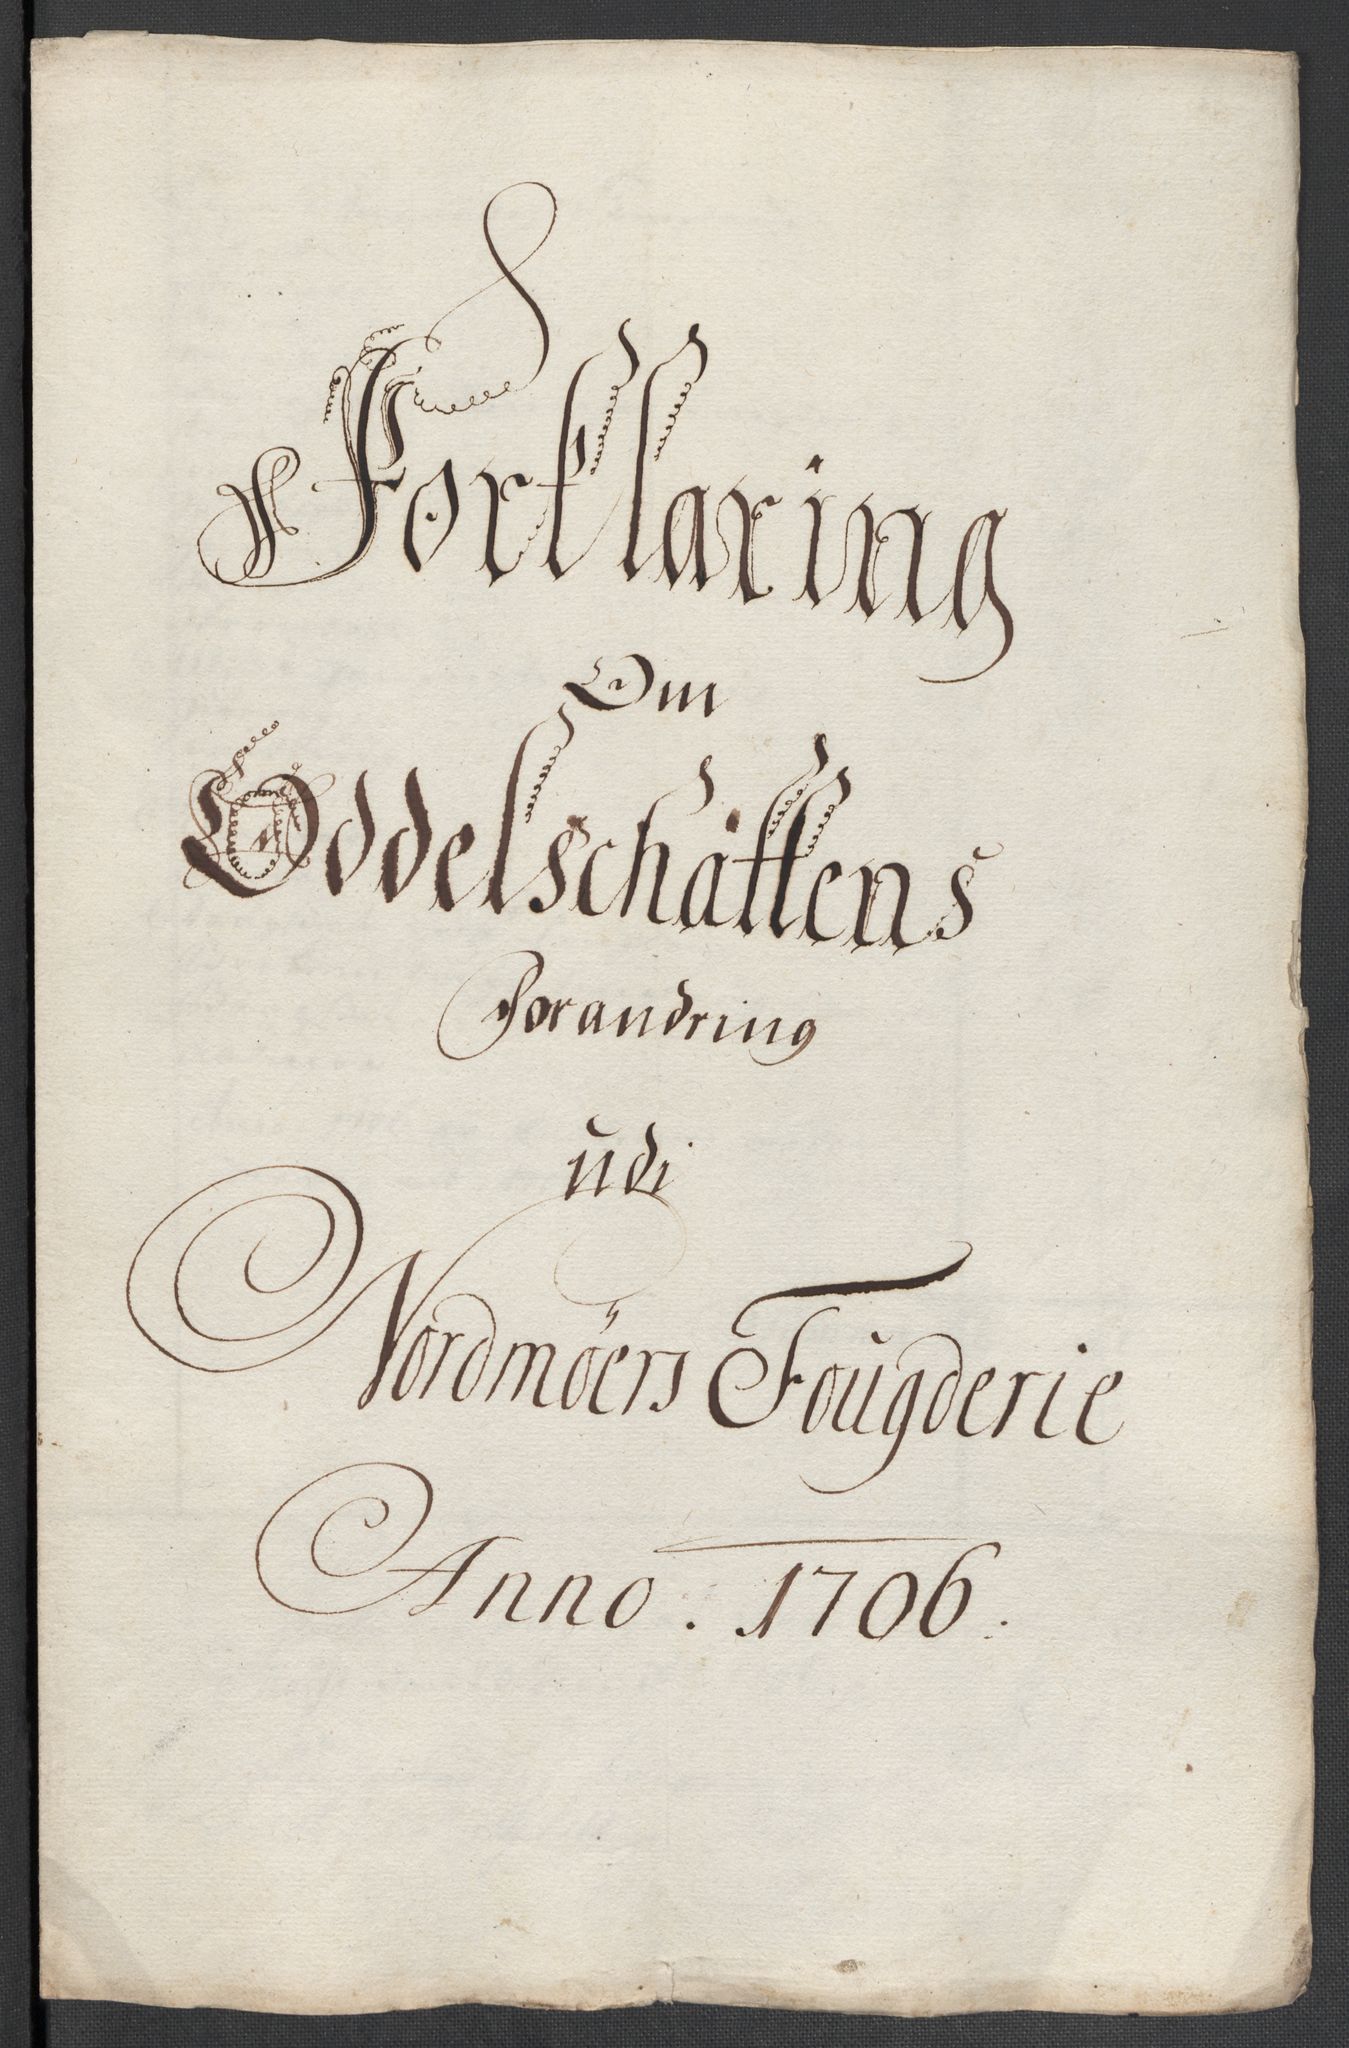 Forklaring
Om
Oddelschattens
Forandring
udi
Nordmöers Fougderie
Anno. 1706.